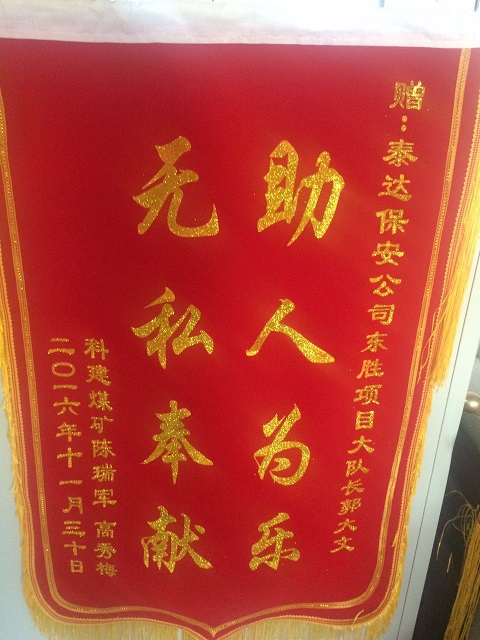 赠：泰达保安公司东胜项目大队长郭大文
助人为乐
无私奉献
科建煤矿陈瑞军 高秀梅
二〇一六年十一月三十日